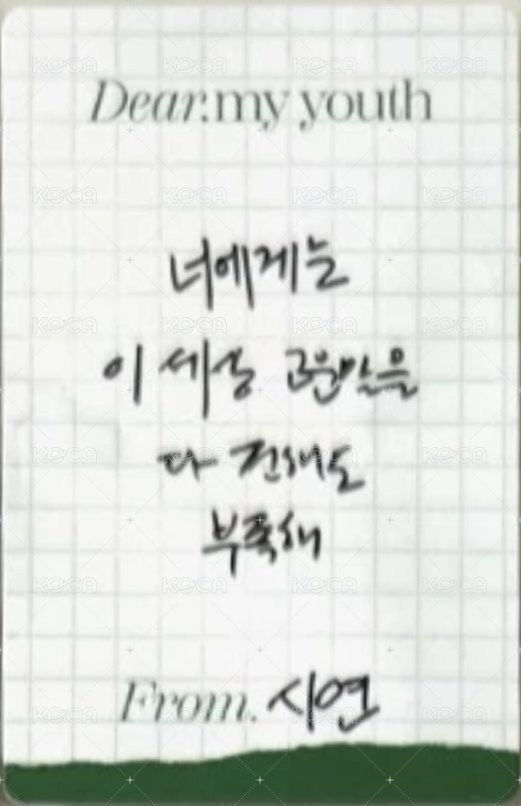 Dear.my youth
너에게는
이 세상 고운말을
다 전해도
부족해
From. 시연